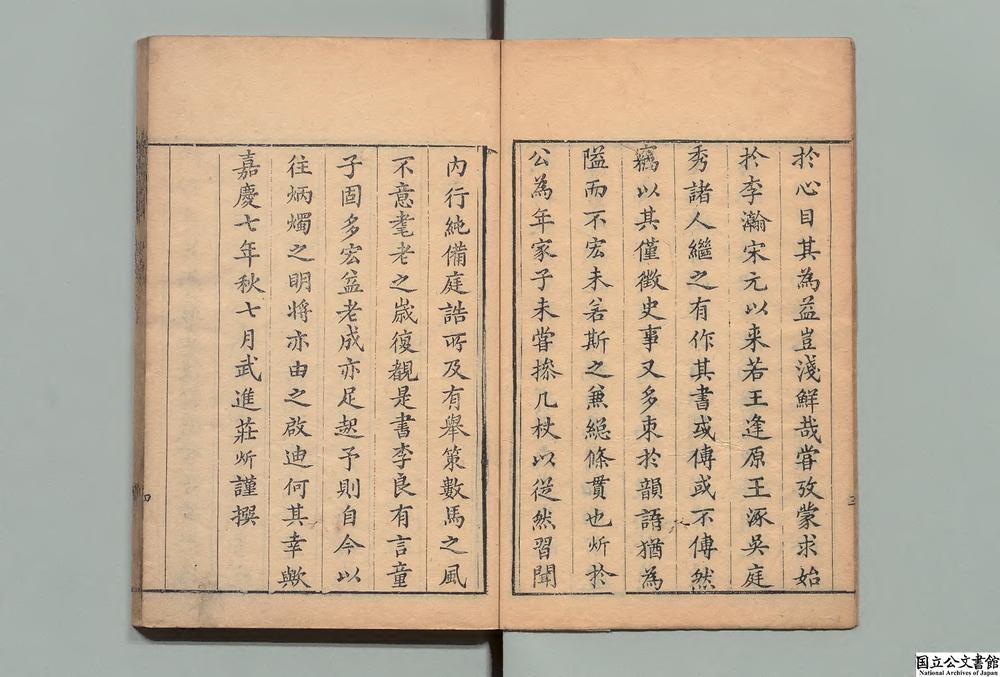 於心目其為益豈淺鮮哉嘗攷蒙求始
於李瀚宋元以来若王逢原王涿吳庭
秀諸人繼之有作其書或傳或不傳然
竊以其僅徵史事又多束於韻語猶為
隘而不宏未若斯之兼緫條貫也炘於
公為年家子未嘗摻几杖以從然習聞
三
内行純備庭誥所及有舉策數馬之風
不意耄老之歳復覩是書李良有言童
子固多宏益老成亦足起予則自今以
往炳燭之明將亦由之啟迪何其幸歟
嘉慶七年秋七月武進莊炘謹撰
四
国立公文書館
National Archives of Japan